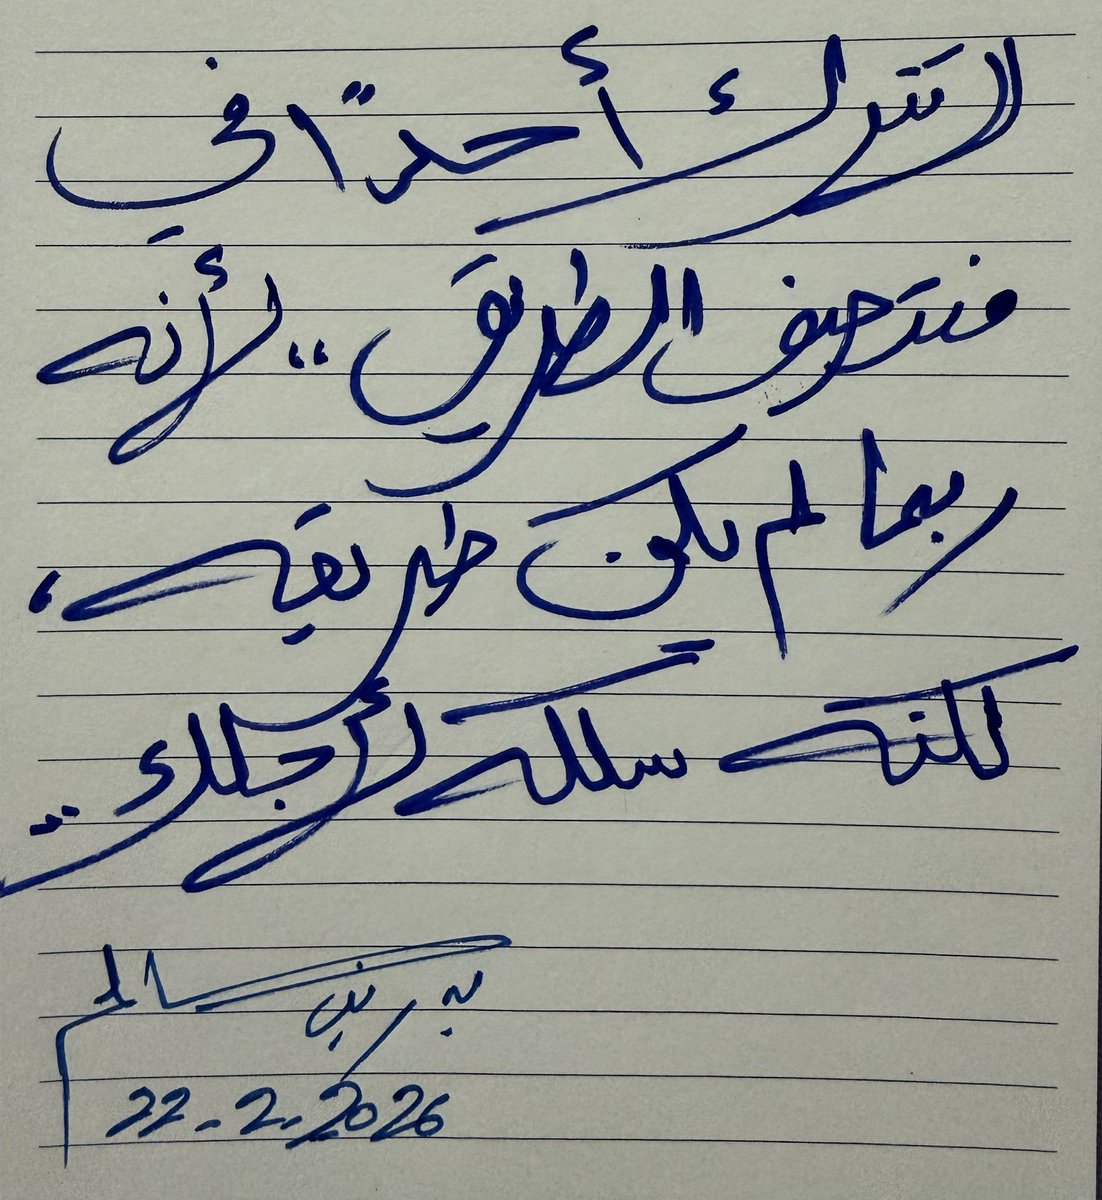 لا تترك أحدًا في
منتصف الطريق .. لأنَّه
ربما لم يكن طريقه ،
لكنه سلكه لأجلك ..
سالم
22-2-2026